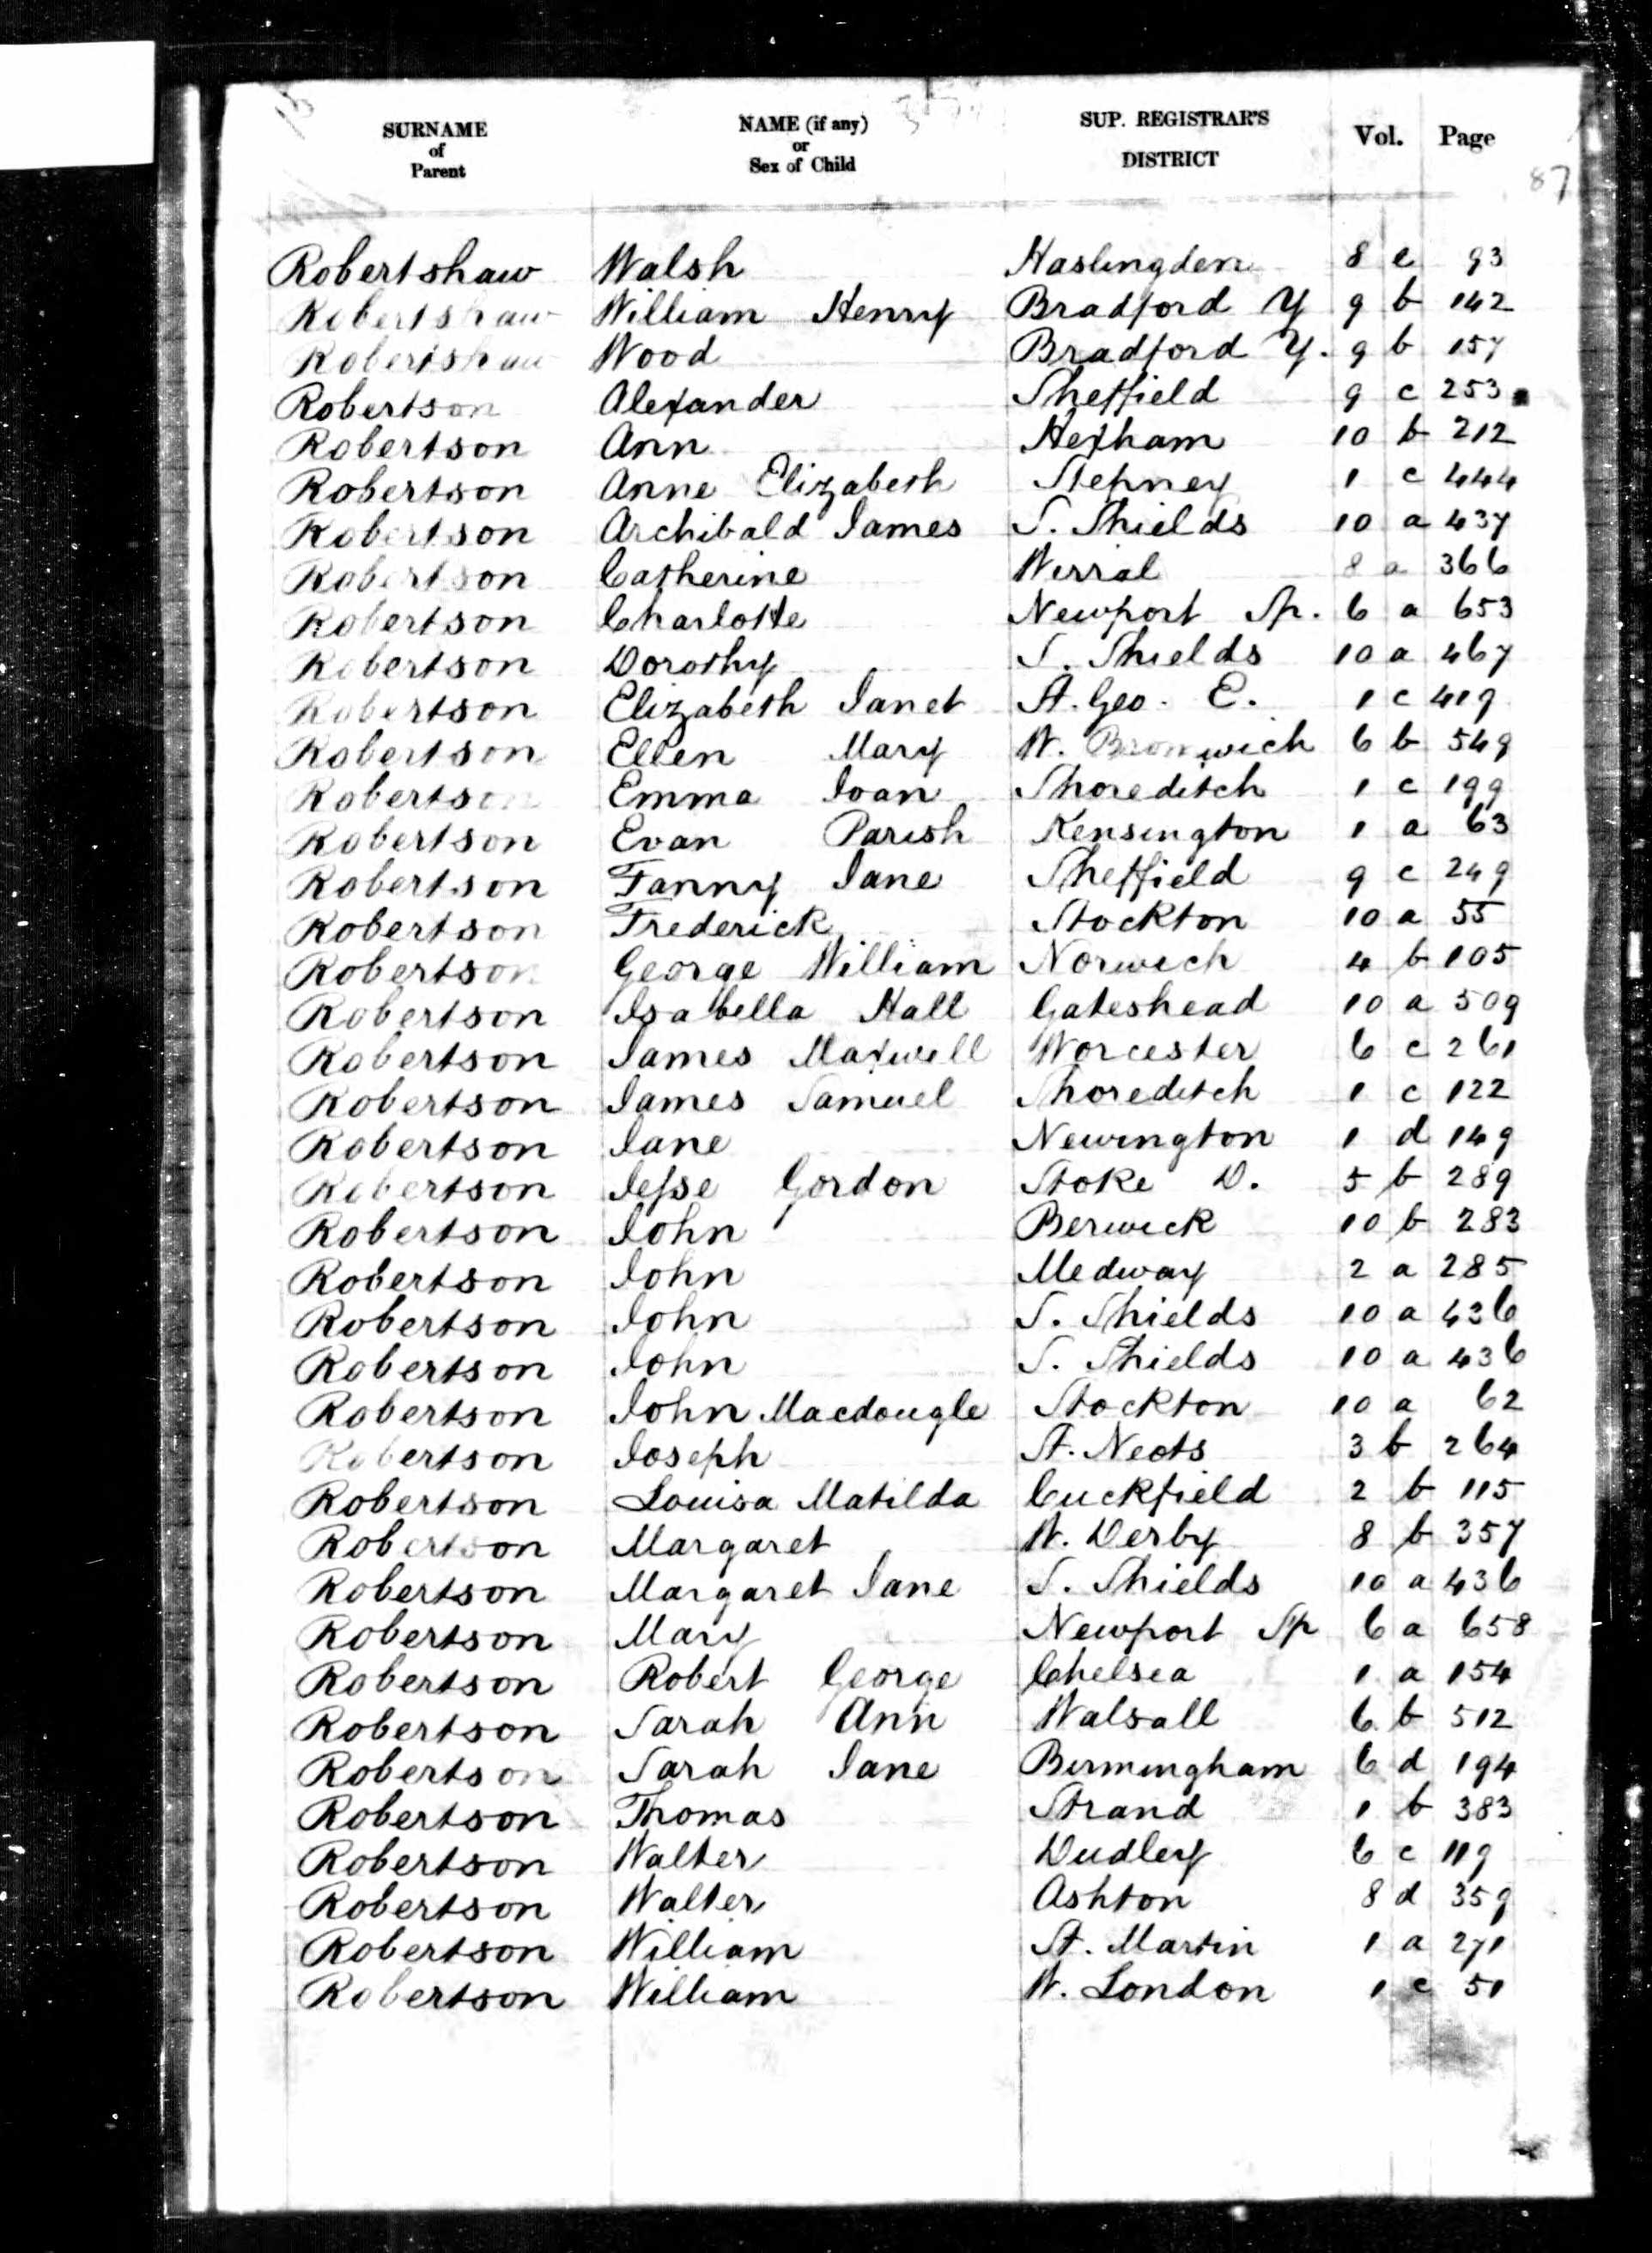 SURNAME of Parent NAME (if any) or Sex of Child SUP. REGISTRAR'S DISTRICT Vol. Page
87
Robertshaw Walsh Haslingden 8 e 93
Robertshaw William Henry Bradford Y 9 b 142
Robertshaw Wood Bradford Y. 9 b 157
Robertson Alexander Sheffield 9 c 253
Robertson Ann Hexham 10 b 212
Robertson Anne Elizabeth Stepney 1 c 444
Robertson Archibald James S. Shields 10 a 437
Robertson Catherine Wirral 8 a 366
Robertson Charlotte Newport Sp. 6 a 653
Robertson Dorothy S. Shields 10 a 467
Robertson Elizabeth Janet St. Geo. E. 1 c 419
Robertson Ellen Mary W. Bromwich 6 b 549
Robertson Emma Joan Shoreditch 1 c 199
Robertson Evan Parish Kensington 1 a 63
Robertson Fanny Jane Sheffield 9 c 249
Robertson Frederick Stockton 10 a 55
Robertson George William Norwich 4 b 105
Robertson Isabella Hall Gateshead 10 a 509
Robertson James Maxwell Worcester 6 c 261
Robertson James Samuel Shoreditch 1 c 122
Robertson Jane Newington 1 d 149
Robertson Jesse Gordon Stoke D. 5 b 289
Robertson John Berwick 10 b 283
Robertson John Medway 2 a 285
Robertson John S. Shields 10 a 436
Robertson John S. Shields 10 a 436
Robertson John Macdougle Stockton 10 a 62
Robertson Joseph St. Neots 3 b 264
Robertson Louisa Matilda Cuckfield 2 b 115
Robertson Margaret W. Derby 8 b 357
Robertson Margaret Jane S. Shields 10 a 436
Robertson Mary Newport Sp 6 a 658
Robertson Robert George Chelsea 1 a 154
Robertson Sarah Ann Walsall 6 b 512
Robertson Sarah Jane Birmingham 6 d 194
Robertson Thomas Strand 1 b 383
Robertson Walter Dudley 6 c 119
Robertson Walter Ashton 8 d 359
Robertson William St. Martin 1 a 271
Robertson William W. London 1 c 51